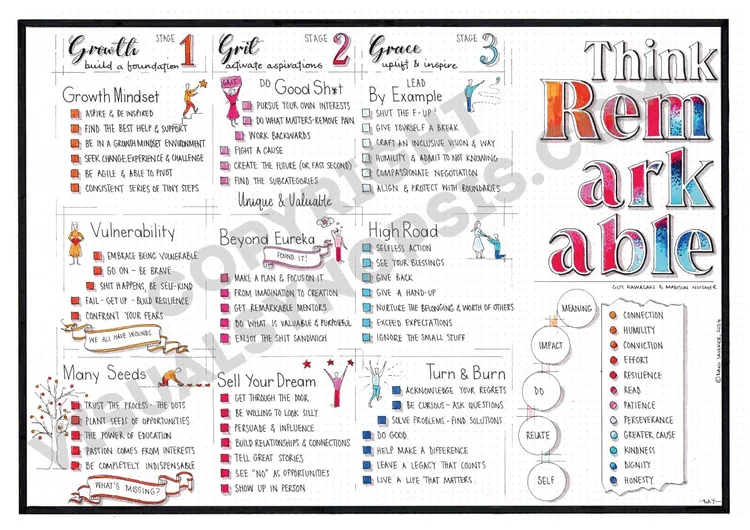 Growth STAGE 1
build a foundation
Growth Mindset
ASPIRE & BE INSPIRED
FIND THE BEST HELP & SUPPORT
BE IN A GROWTH MINDSET ENVIRONMENT
SEEK CHANGE, EXPERIENCE & CHALLENGE
BE AGILE & ABLE TO PIVOT
CONSISTENT SERIES OF TINY STEPS
Vulnerability
EMBRACE BEING VULNERABLE
GO ON - BE BRAVE
SHIT HAPPENS, BE SELF-KIND
FAIL - GET UP - BUILD RESILIENCE
CONFRONT YOUR FEARS
WE ALL HAVE WOUNDS
Many Seeds
TRUST THE PROCESS - THE DOTS
PLANT SEEDS OF OPPORTUNITIES
THE POWER OF EDUCATION
PASSION COMES FROM INTERESTS
BE COMPLETELY INDISPENSABLE
WHAT'S MISSING?
Grit STAGE 2
activate aspirations
GRIT
DO Good Sh*t
PURSUE YOUR OWN INTERESTS
DO WHAT MATTERS - REMOVE PAIN
WORK BACKWARDS
FIGHT A CAUSE
CREATE THE FUTURE (OR FAST SECOND)
FIND THE SUBCATEGORIES
Unique & Valuable
Beyond Eureka
FOUND IT!
MAKE A PLAN & FOCUS ON IT
FROM IMAGINATION TO CREATION
GET REMARKABLE MENTORS
DO WHAT IS VALUABLE & PURPOSEFUL
ENJOY THE SHIT SANDWICH
Sell Your Dream
GET THROUGH THE DOOR
BE WILLING TO LOOK SILLY
PERSUADE & INFLUENCE
BUILD RELATIONSHIPS & CONNECTIONS
TELL GREAT STORIES
SEE "NO" AS OPPORTUNITIES
SHOW UP IN PERSON
Grace STAGE 3
uplift & inspire
LEAD
By Example
SHUT THE F-UP!
GIVE YOURSELF A BREAK
CRAFT AN INCLUSIVE VISION & WAY
HUMILITY & ADMIT TO NOT KNOWING
COMPASSIONATE NEGOTIATION
ALIGN & PROTECT WITH BOUNDARIES
High Road
SELFLESS ACTION
SEE YOUR BLESSINGS
GIVE BACK
GIVE A HAND-UP
NURTURE THE BELONGING & WORTH OF OTHERS
EXCEED EXPECTATIONS
IGNORE THE SMALL STUFF
Turn & Burn
ACKNOWLEDGE YOUR REGRETS
BE CURIOUS - ASK QUESTIONS
SOLVE PROBLEMS - FIND SOLUTIONS
DO GOOD
HELP MAKE A DIFFERENCE
LEAVE A LEGACY THAT COUNTS
LIVE A LIFE THAT MATTERS
Think
Rem
ark
able
GUY KAWASAKI & MADISUN NUISMER
MEANING
IMPACT
DO
RELATE
SELF
CONNECTION
HUMILITY
CONVICTION
EFFORT
RESILIENCE
READ
PATIENCE
PERSEVERANCE
GREATER CAUSE
KINDNESS
DIGNITY
HONESTY
COPYRIGHT
VISUALSYNOPSIS.COM